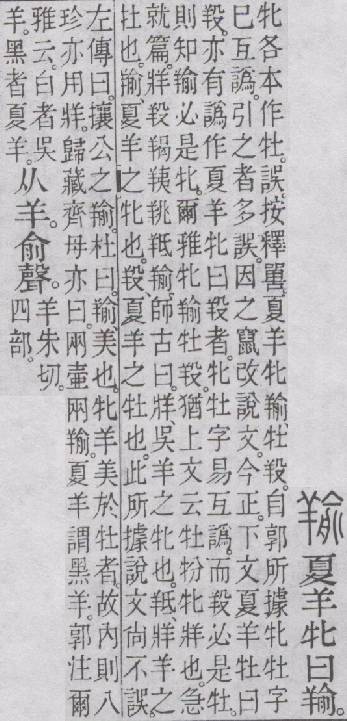 羭 夏羊牝曰羭。
牝各本作牡。誤。按釋嘼。夏羊牝羭。牡羖。自郭所據牝牡字
巳互譌。引之者多誤。因之竄改說文。今正。下文夏羊牡曰
羖。亦有譌作夏羊牝曰羖者。牝牡字易互譌。而羖必是牡。
則知羭必是牝。爾雅牝羭牡羖。猶上文云牡羒牝牂也。急
就篇。牂羖羯羠䍮羝羭。師古曰。牂、吳羊之牝也。羝、牂羊之
牡也。羭、夏羊之牝也。羖、夏羊之牡也。此所據說文尙不誤。
左傳曰。攘公之羭。杜曰。羭、美也。牝羊美於牡者。故內則八
珍亦用牂。歸藏齊母亦曰。兩壷兩羭。夏羊謂黑羊。郭注爾
雅云。白者吳
羊。黑者夏羊。
从羊。俞聲。
羊朱切。
四部。